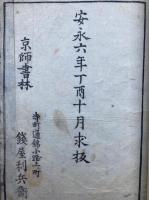 安永六年丁酉十月求板
寺町通錦小路上町
京師書林
錢屋利兵衛